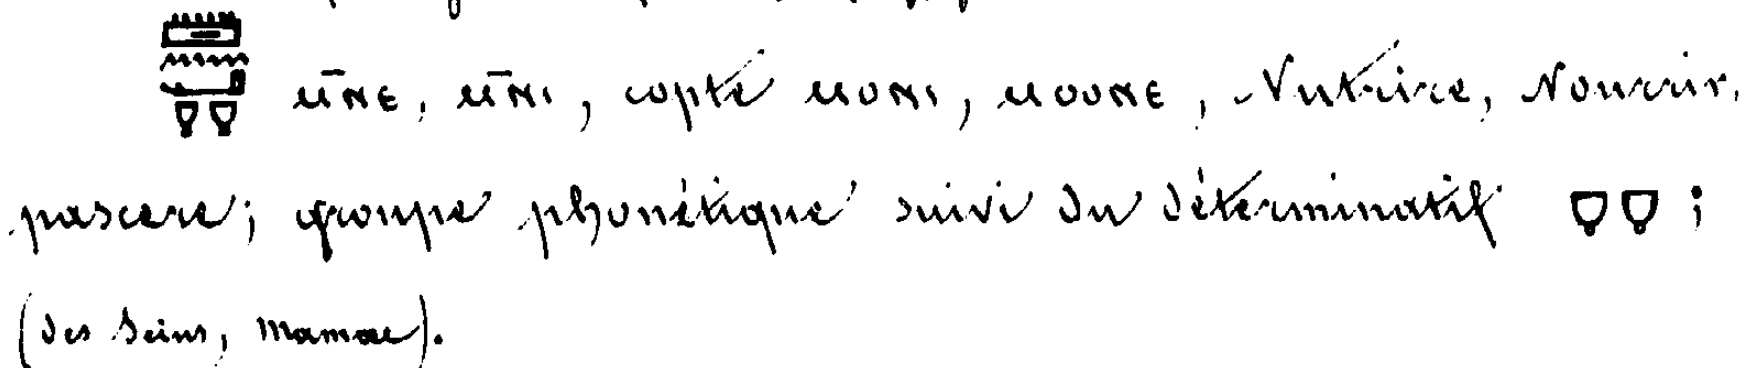 𓏠𓈖𓂝𓂑𓂑 ⲙ̄ⲛⲉ, ⲙ̄ⲛⲓ, copte ⲙⲟⲛⲓ, ⲙⲟⲟⲛⲉ, Nutrire, Nourrir,
pascere; groupe phonétique suivi du déterminatif 𓂑𓂑;
(des Seins, Mamae).